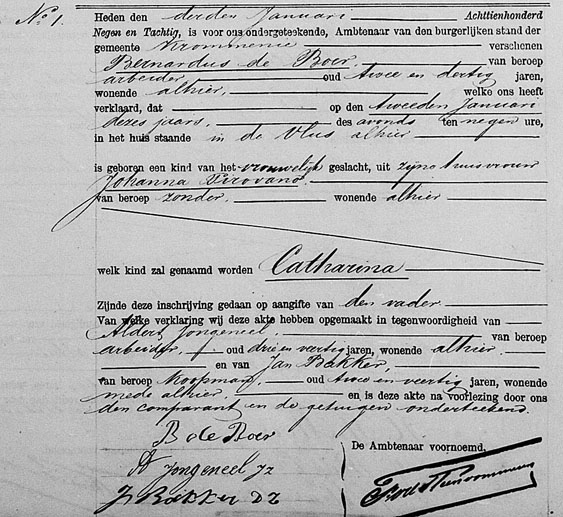 No. 1.
Heden den derden Januari Achttienhonderd
Negen en Tachtig, is voor ons ondergeteekende, Ambtenaar van den burgerlijken stand der
gemeente Krommenie verschenen
Bernardus de Boer van beroep
arbeider oud twee en dertig jaren,
wonende alhier welke ons heeft
verklaard, dat op den tweeden Januari
dezes jaars, des avonds ten negen ure,
in het huis staande in de Vlus alhier
is geboren een kind van het vrouwelijk geslacht, uit zijne huisvrouw
Johanna Pirovano
van beroep zonder, wonende alhier
welk kind zal genaamd worden Catharina
Zijnde deze inschrijving gedaan op aangifte van den vader
Van welke verklaring wij deze akte hebben opgemaakt in tegenwoordigheid van
Aldert Jongeneel, van beroep
arbeider, oud drie en veertig jaren, wonende alhier
en van Jan Bakker,
van beroep Koopman, oud twee en veertig jaren, wonende
mede alhier. en is deze akte na voorlezing door ons
den comparant en de getuigen onderteekend.
B de Boer
A Jongeneel Jz
J Bakker Dz
De Ambtenaar voornoemd,